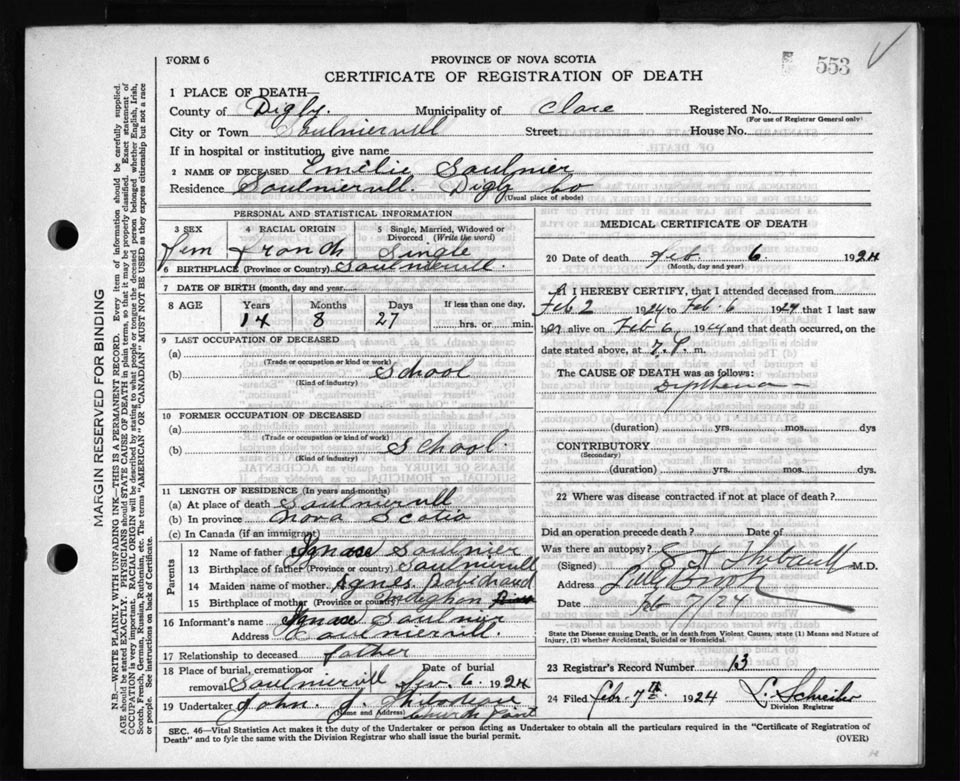 FORM 6
PROVINCE OF NOVA SCOTIA
553
CERTIFICATE OF REGISTRATION OF DEATH
1 PLACE OF DEATH—
County of Digby. Municipality of Clare Registered No.
(For use of Registrar General only)
City or Town Saulniervill Street House No.
If in hospital or institution, give name
2 NAME OF DECEASED Emilie Saulnier
Residence Saulniervill. Digby Co
(Usual place of abode)
PERSONAL AND STATISTICAL INFORMATION
3 SEX 4 RACIAL ORIGIN 5 Single, Married, Widowed or Divorced (Write the word)
Fem French Single
6 BIRTHPLACE (Province or Country) Saulniervill.
7 DATE OF BIRTH (month, day and year)
8 AGE Years Months Days If less than one day,
14 8 27 hrs. or min.
9 LAST OCCUPATION OF DECEASED
(a)
(Trade or occupation or kind or work)
(b) School
(Kind of industry)
10 FORMER OCCUPATION OF DECEASED
(a)
(Trade or occupation or kind of work)
(b) School.
(Kind of industry)
11 LENGTH OF RESIDENCE (In years and months)
(a) At place of death Saulniervill
(b) In province Nova Scotia
(c) In Canada (if an immigrant)
Parents
12 Name of father Ignace Saulnier
13 Birthplace of father (Province or country) Saulniervill
14 Maiden name of mother Agnes Robichaud
15 Birthplace of mother (Province or country) Meteghan
16 Informant's name Ignace Saulnier
Address Saulniervill.
17 Relationship to deceased father
18 Place of burial, cremation or removal Saulniervill Date of burial 6 1924
19 Undertaker John. J.
(Name and Address) Church Point
MEDICAL CERTIFICATE OF DEATH
20 Date of death Feb. 6 1924
(Month, day and year)
I HEREBY CERTIFY, that I attended deceased from
Feb 2 1924 to Feb. 6 1924 that I last saw
her alive on Feb 6 1924 and that death occurred, on
date stated above, at 7. P. m.
The CAUSE OF DEATH was as follows:
Diptheria —
(duration) yrs. mos. dys
CONTRIBUTORY
(Secondary)
(duration) yrs. mos. dys.
22 Where was disease contracted if not at place of death?
Did an operation precede death? Date of
Was there an autopsy?
(Signed) Thibault M.D.
Address
Date Feb 7/24
State the Disease causing Death, or in death from Violent Causes, state (1) Means and Nature of
Injury, (2) whether Accidental, Suicidal or Homicidal.
23 Registrar's Record Number 13
24 Filed Feb. 7th. 1924 L. Schreiber
Division Registrar
SEC. 46—Vital Statistics Act makes it the duty of the Undertaker or person acting as Undertaker to obtain all the particulars required in the "Certificate of Registration of
Death" and to fyle the same with the Division Registrar who shall issue the burial permit. (OVER)
MARGIN RESERVED FOR BINDING
N.B.—WRITE PLAINLY, WITH UNFADING INK—THIS IS A PERMANENT RECORD. Every item of information should be carefully supplied.
AGE should be stated EXACTLY. PHYSICIANS should STATE CAUSE OF DEATH in plain terms, so that it may be properly classified. Exact statement of
OCCUPATION is very important. RACIAL ORIGIN will be described by stating to what people or tongue the deceased person belonged whether English, Irish,
Scotch, French, German, Russian, Ruthenian, etc. The terms "AMERICAN" OR "CANADIAN" MUST NOT BE USED as they express citizenship but not a race
or people. See instructions on back of Certificate.